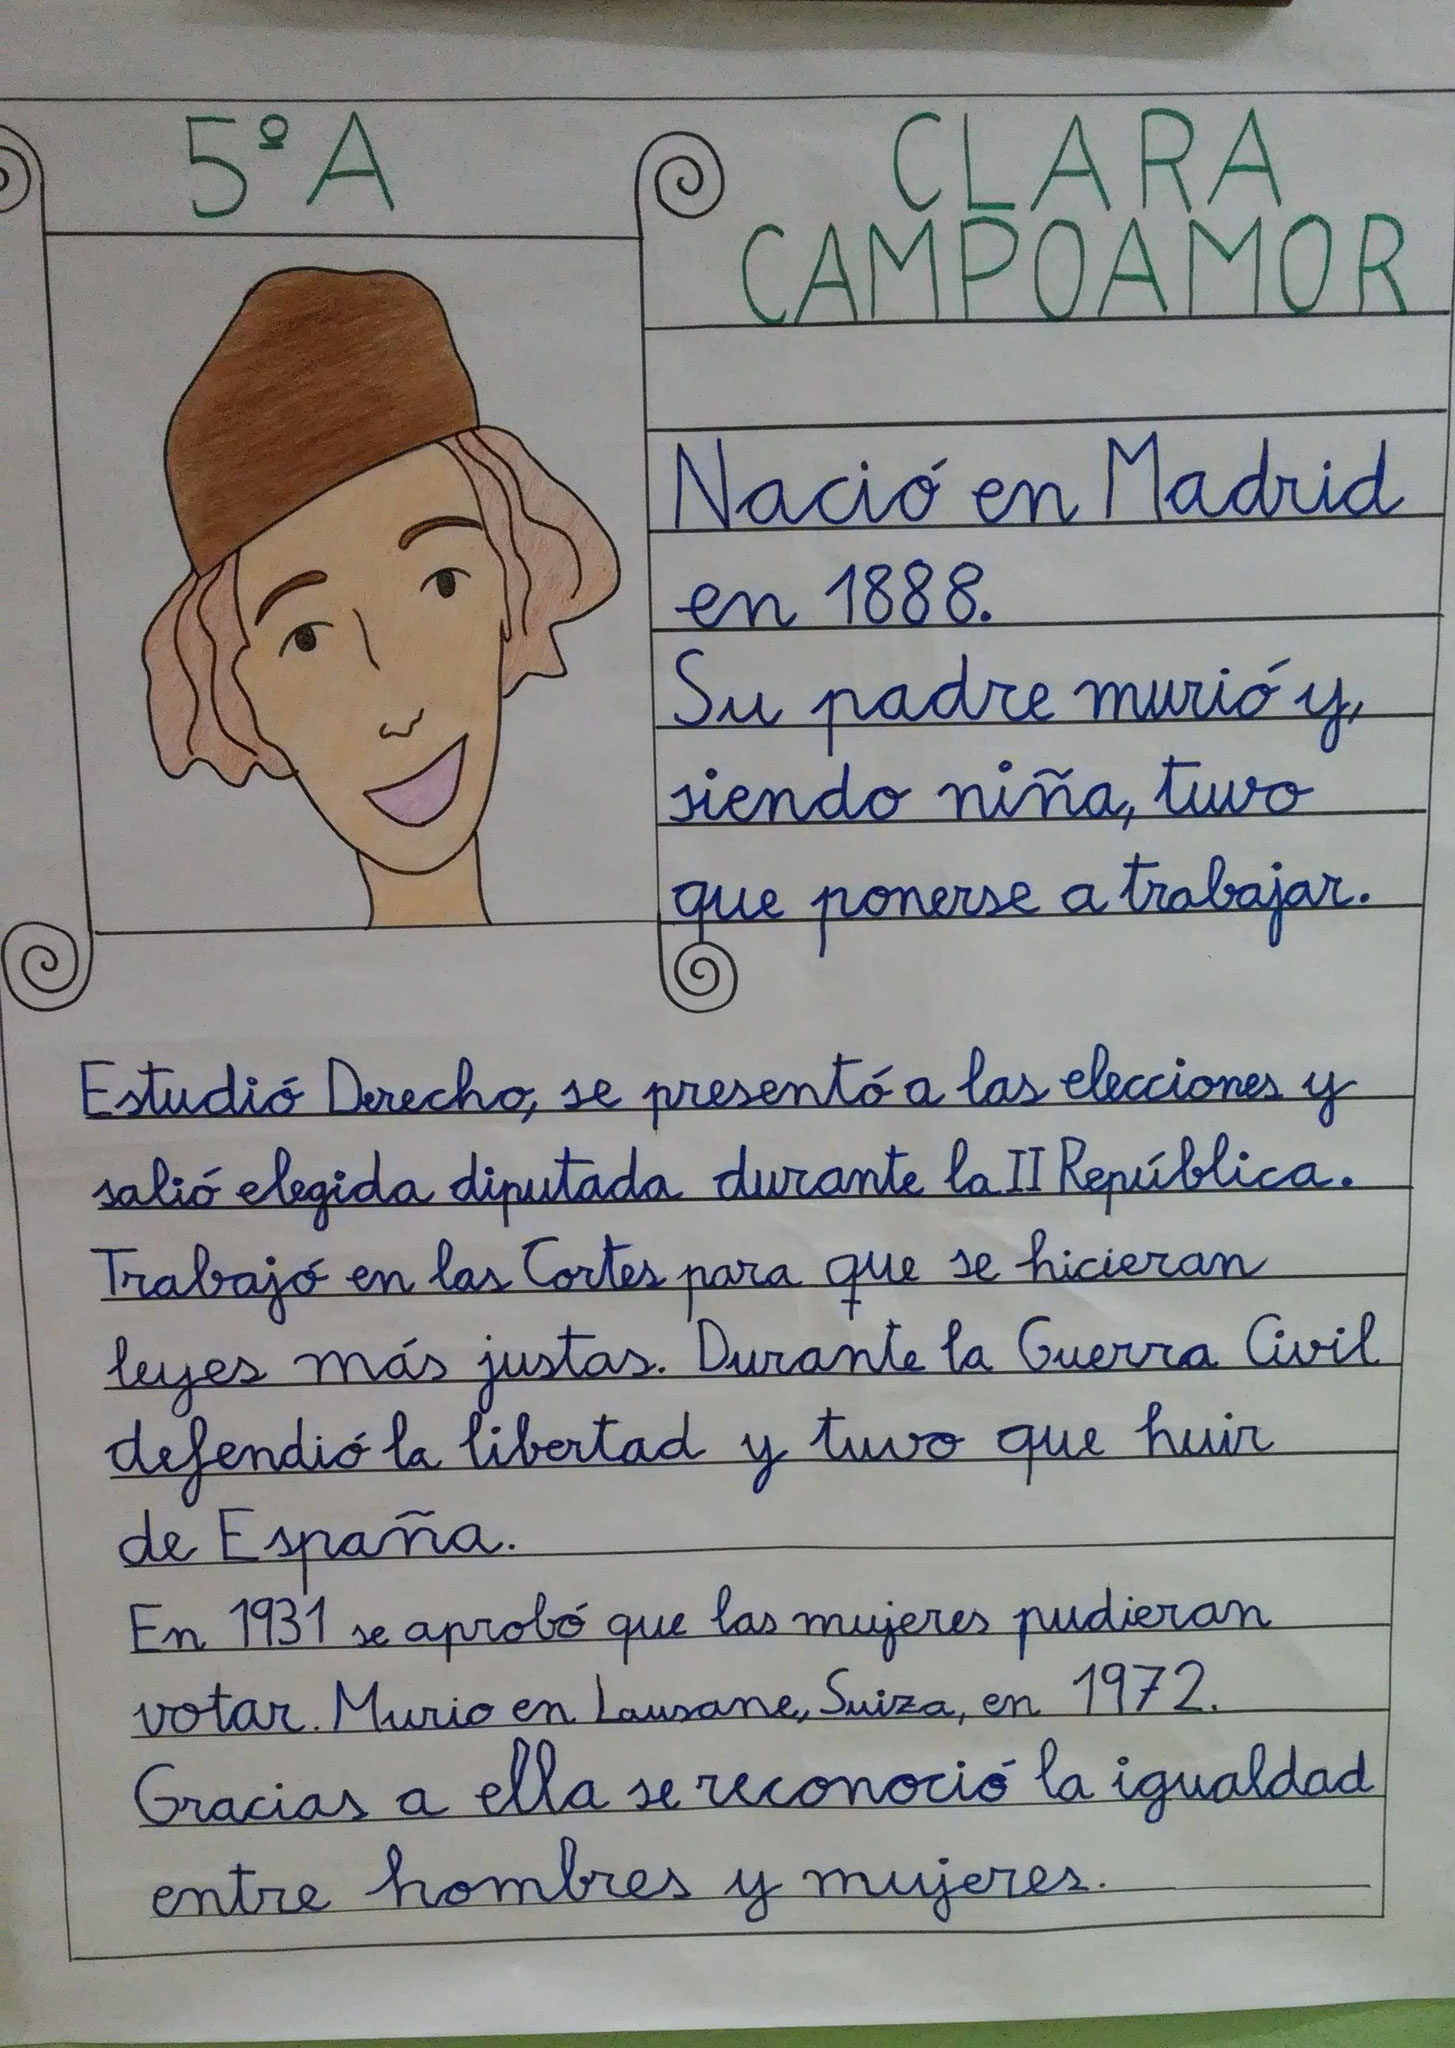 5º A
CLARA
CAMPOAMOR
Nació en Madrid
en 1888.
Su padre murió y,
siendo niña, tuvo
que ponerse a trabajar.
Estudió Derecho, se presentó a las elecciones y
salió elegida diputada durante la II República.
Trabajó en las Cortes para que se hicieran
leyes más justas. Durante la Guerra Civil
defendió la libertad y tuvo que huir
de España.
En 1931 se aprobó que las mujeres pudieran
votar. Murio en Lausane, Suiza, en 1972.
Gracias a ella se reconoció la igualdad
entre hombres y mujeres.